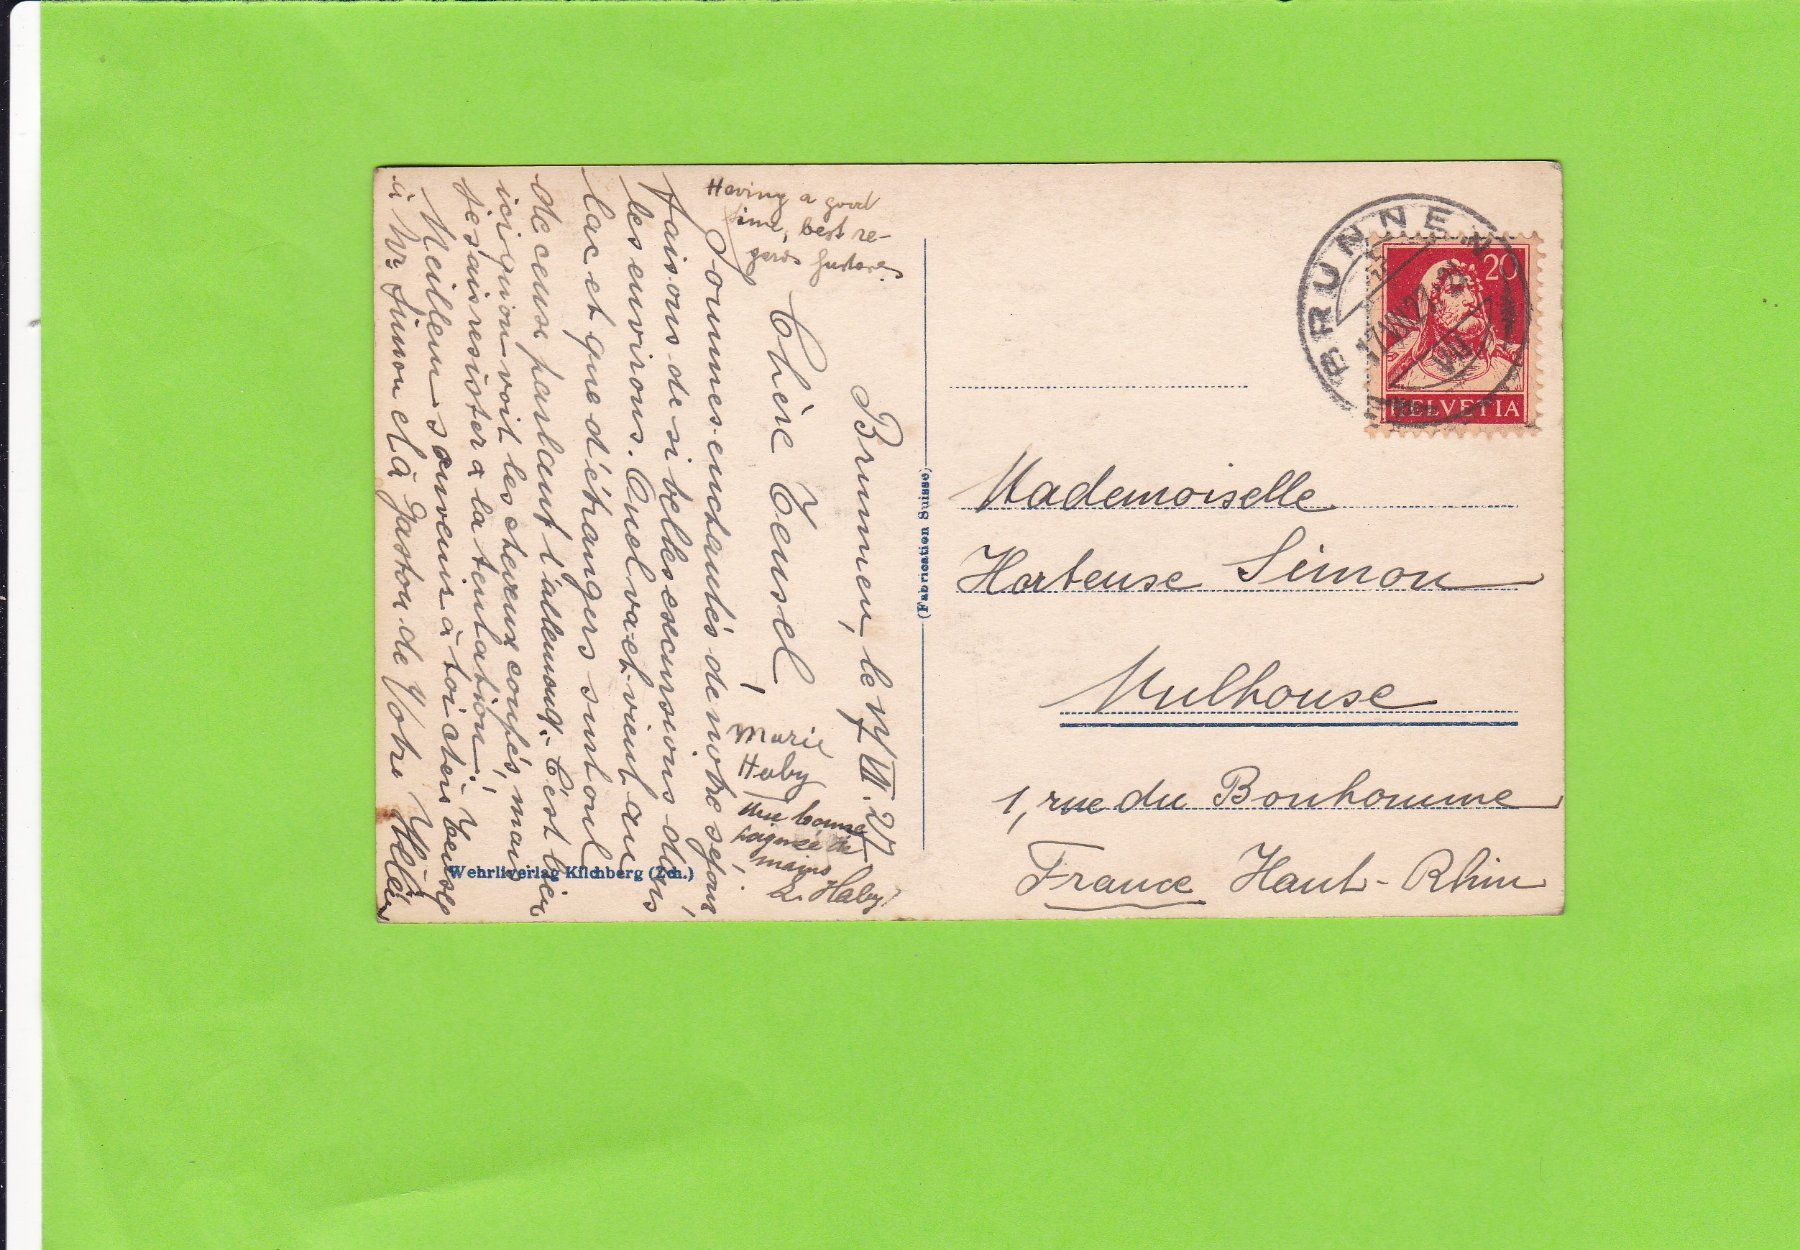 Brunnen, le 17 VII. 27.
Chère Tensel !
Sommes enchantés de notre séjour,
faisons de si belles excursions dans
les environs. Quel va-et-vient au
lac et que d'étrangers surtout
de ceux parlant l'allemand. C'est bien
ici qu'on voit les cheveux coupés, mais
je sais resister a la tentation !
Meilleurs souvenirs à toi chère Tensel
à Mr Simon et à Gaston de Votre
Having a good
time, best re-
gards Gustave.
Marie
Haby
Une bonne
poignée de
mains
L. Haby
(Fabrication Suisse)
Wehrliverlag Kilchberg (Zch.)
BRUNNEN
17.VII.27
VII
20
HELVETIA
Mademoiselle
Hortense Simon
Mulhouse
1, rue du Bonhomme
France Haut-Rhin